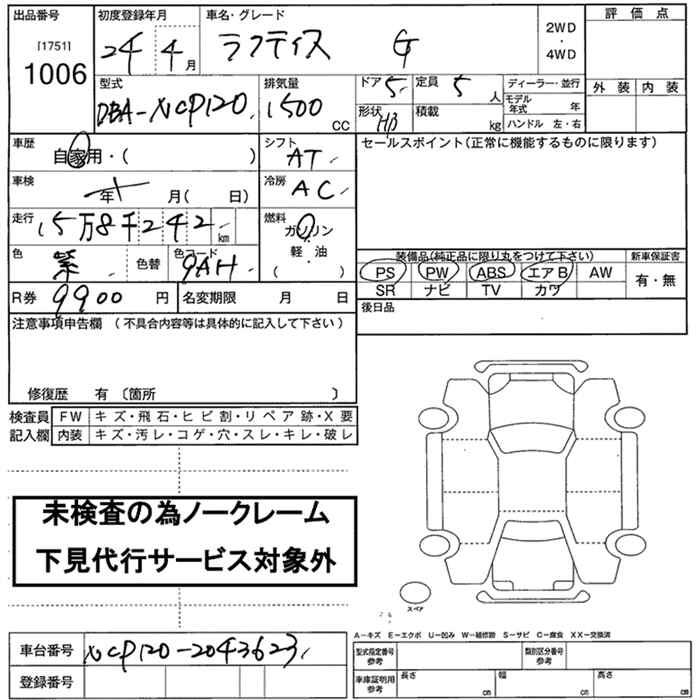 出品番号 初度登録年月 車名・グレード 評価点
[1751] 1006 24 4月 ラクティス G 2WD・4WD
外装 内装
型式 排気量 ドア 5 定員 5人 ディーラー・並行
DBA-NCP120 1500cc 形状 HB 積載 kg モデル年式 年
ハンドル 左・右
車歴 自家用・( ) シフト AT セールスポイント(正常に機能するものに限ります)
車検 年 月( 日) 冷房 AC
走行 15万8千242km 燃料 ガソリン
軽・油
( )
色 紫 色替 色コード 9AH
装備品(純正品に限り丸をつけて下さい) 新車保証書
PS PW ABS エアB AW 有・無
SR ナビ TV カワ
R券 9900円 名変期限 月 日 後日品
注意事項申告欄(不具合内容等は具体的に記入して下さい)
修復歴 有〔箇所 〕
検査員 FW キズ・飛石・ヒビ割・リペア跡・X要
記入欄 内装 キズ・汚レ・コゲ・穴・スレ・キレ・破レ
未検査の為ノークレーム
下見代行サービス対象外
スペア
A−キズ E−エクボ U−凹み W−補修跡 S−サビ C−腐食 XX−交換済
車台番号 NCP120-2043623
型式指定番号 参考 類別区分番号 参考
登録番号
車庫証明用 参考 長さ cm 幅 cm 高さ cm